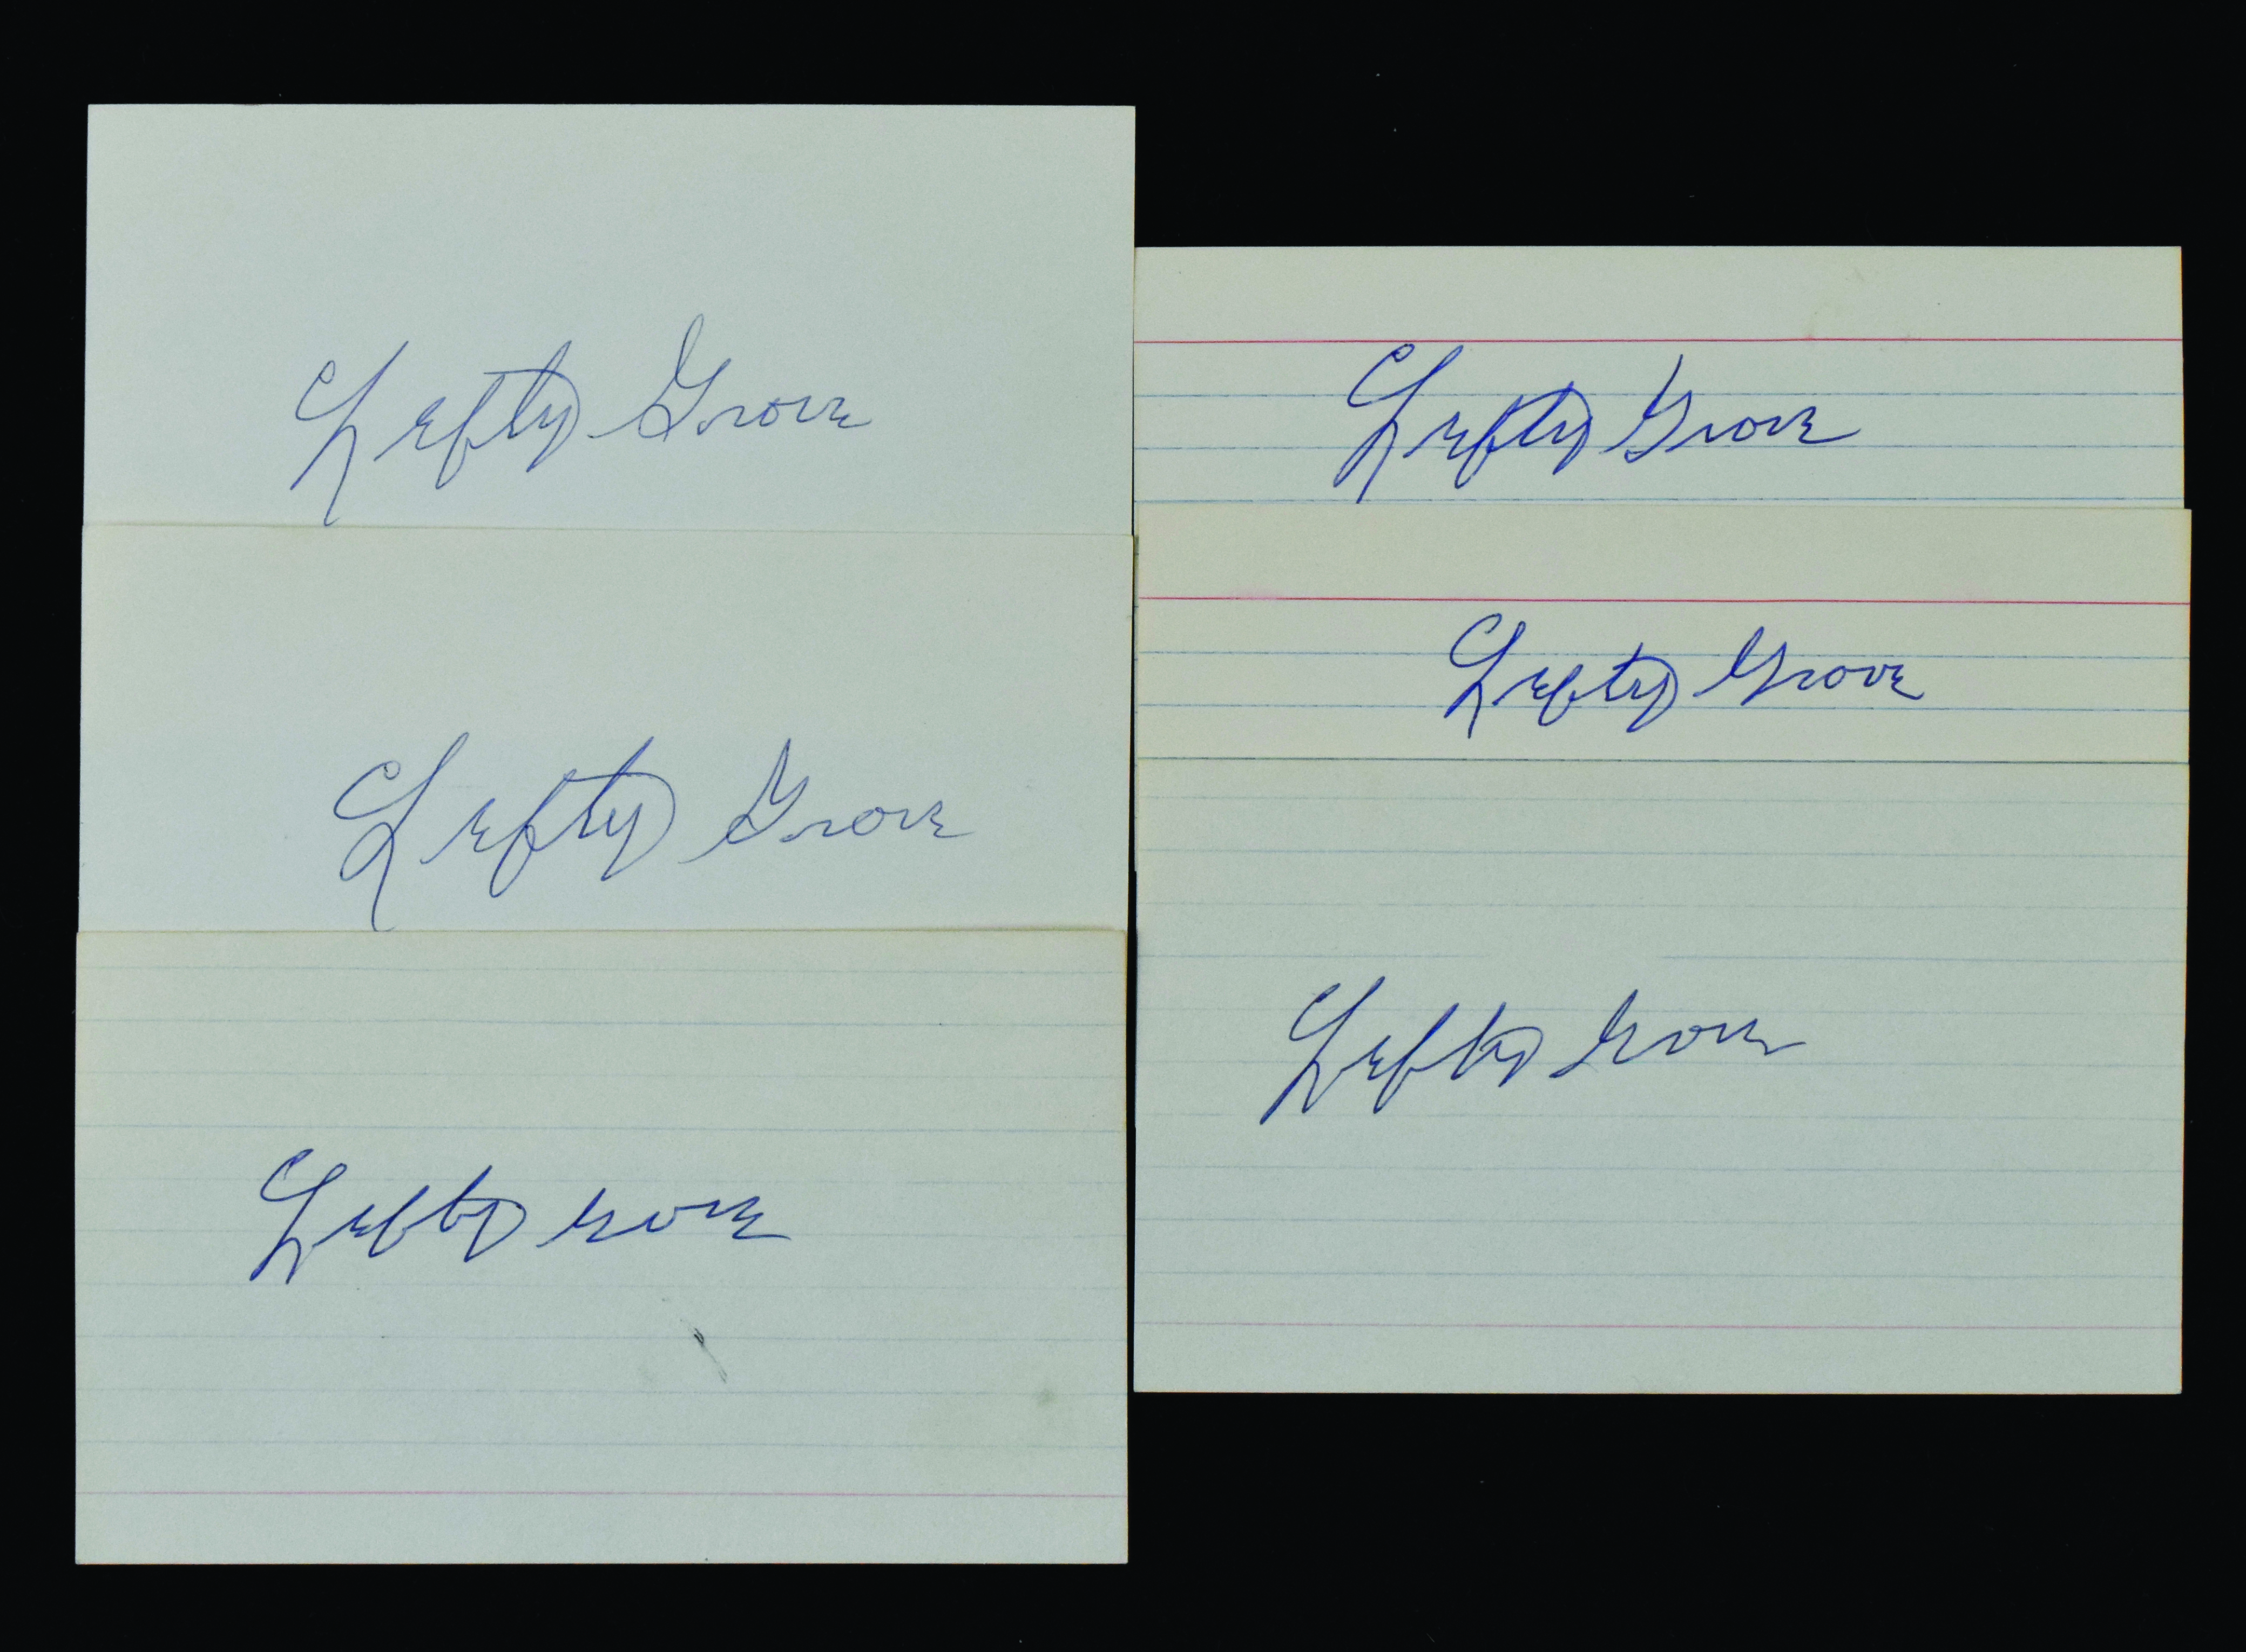 Lefty Grove
Lefty Grove
Lefty Grove
Lefty Grove
Lefty Grove
Lefty Grove